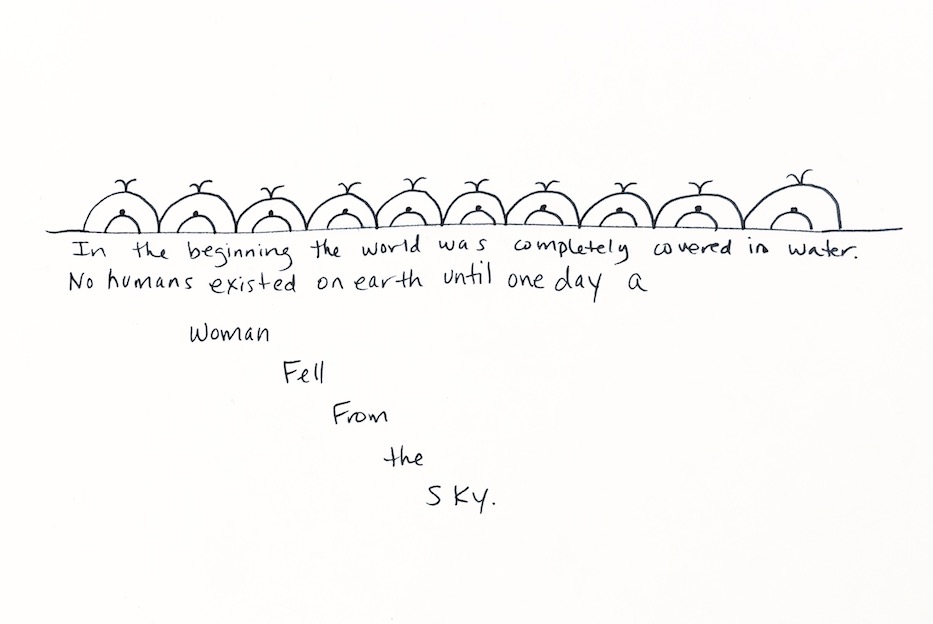 In the beginning the world was completely covered in water.
No humans existed on earth until one day a
Woman
Fell
From
the
SKy.